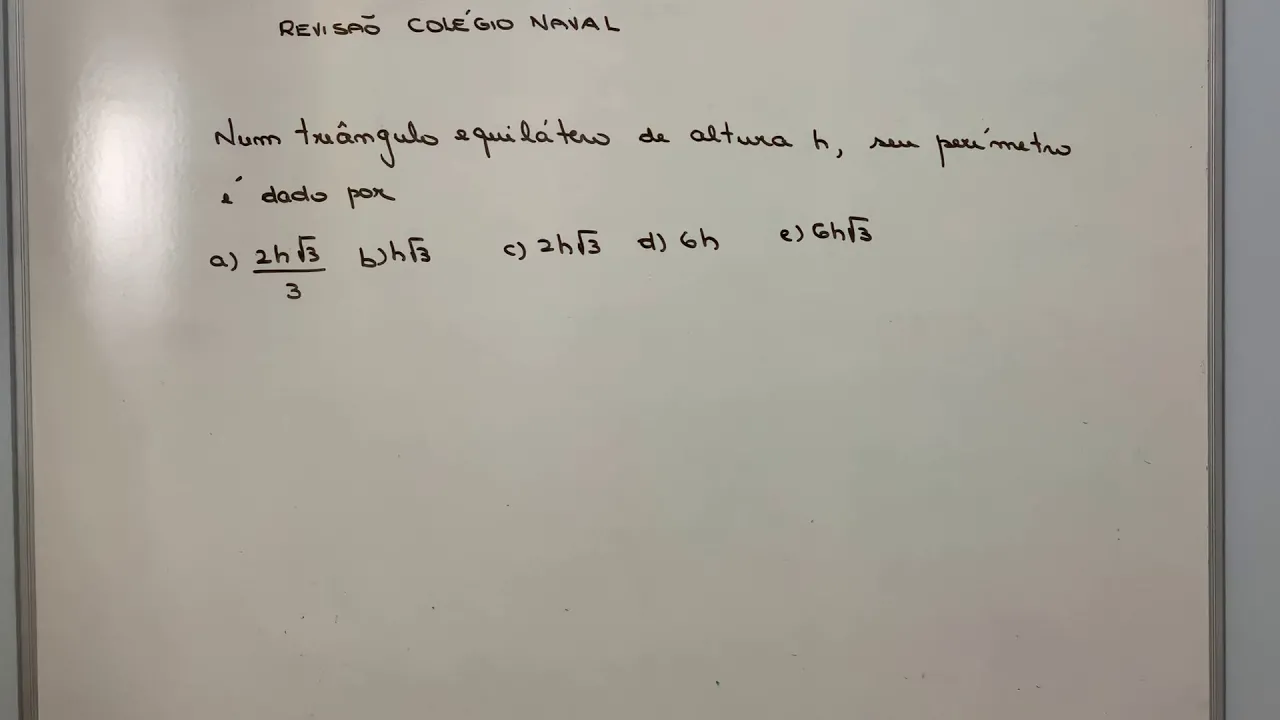 REVISÃO COLÉGIO NAVAL
Num triângulo equilátero de altura h, seu perímetro
é dado por
a) 2h√3/3 b) h√3 c) 2h√3 d) 6h e) 6h√3